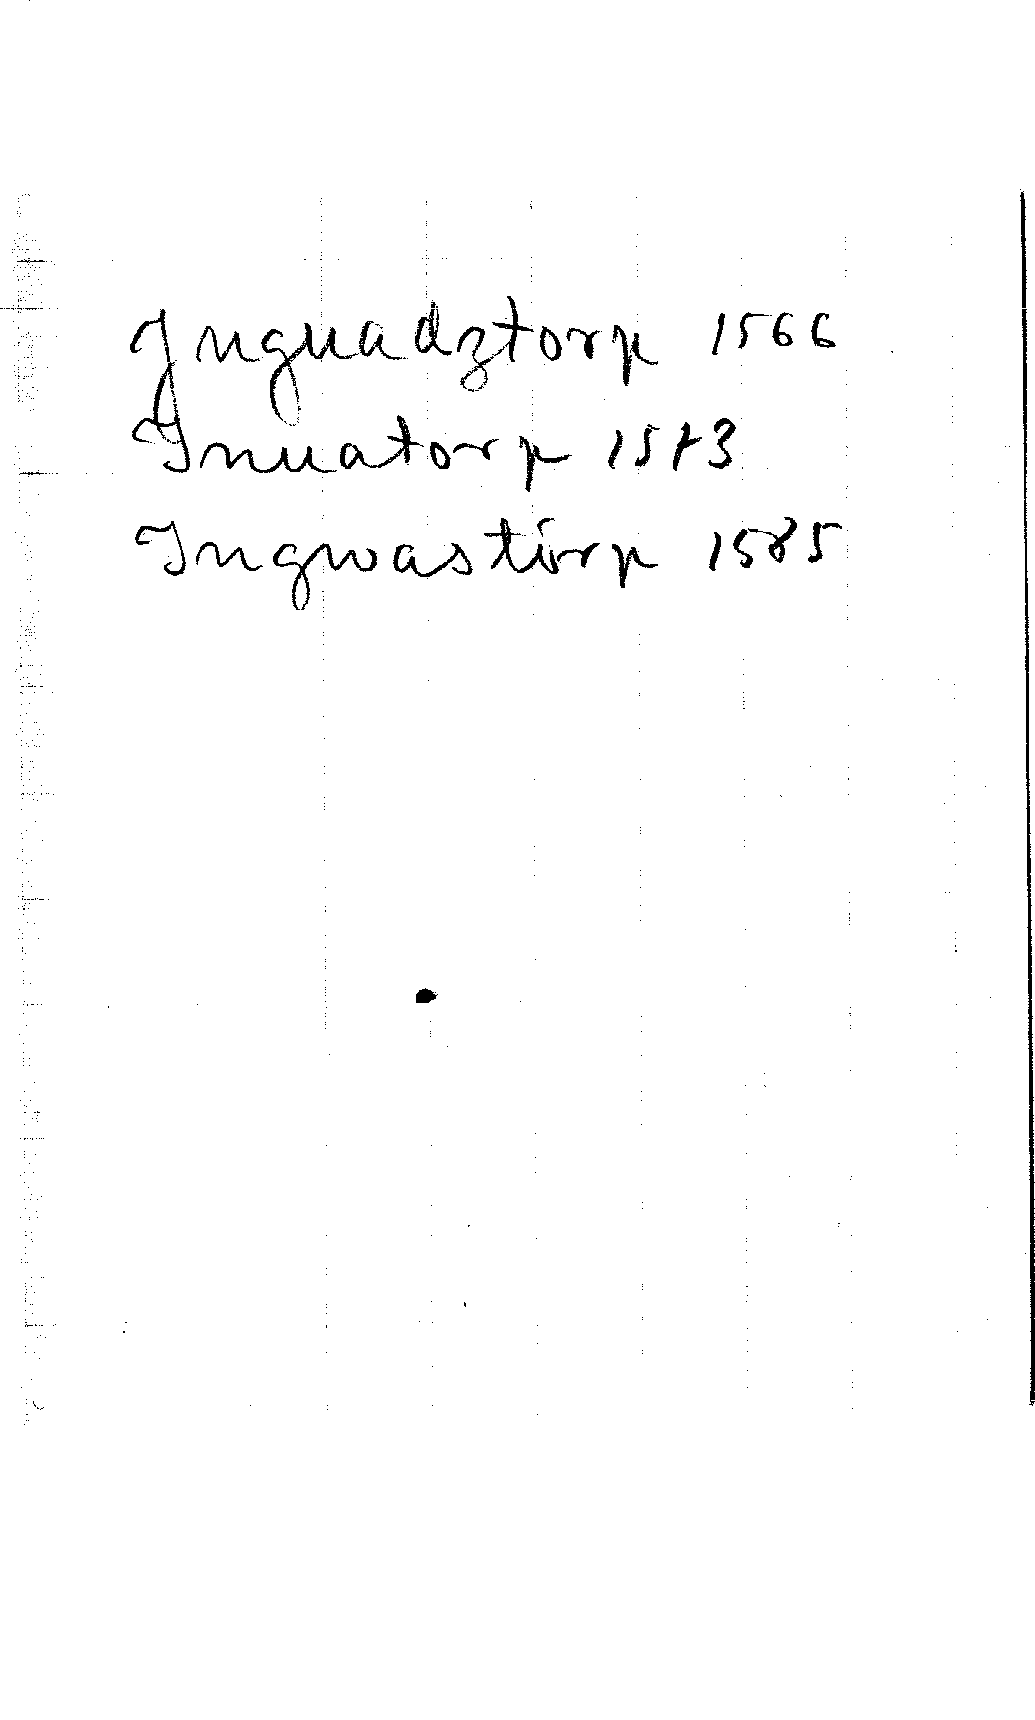 Jnguadztorp 1566
Inuatorp 1573
Ingwastorp 1585